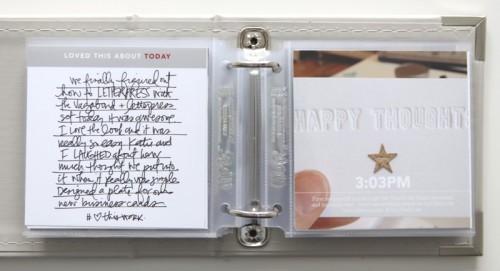 LOVED THIS ABOUT TODAY
we finally figured out
how to LETTERPRESS with
the Vagabond + Letterpress
set today. it was awesome.
I love the look and it was
really so easy. Katie and
I LAUGHED about how
much thought we put into
it when it really was simple.
Designed a plate for our
new business cards.
#♡thiswork.
HAPPY THOUGHT
3:03PM